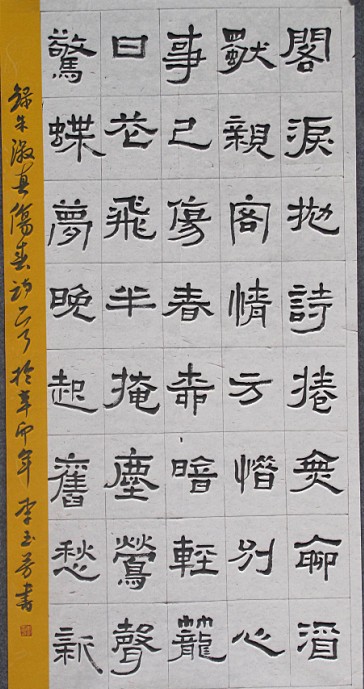 閣淚拋詩捲無聊酒
獨親客情方惜別心
事已傷春柳暗輕籠
日花飛半掩塵鶯聲
驚蝶夢晚起舊愁新
錄朱淑真傷春詩於辛卯年李玉芳書